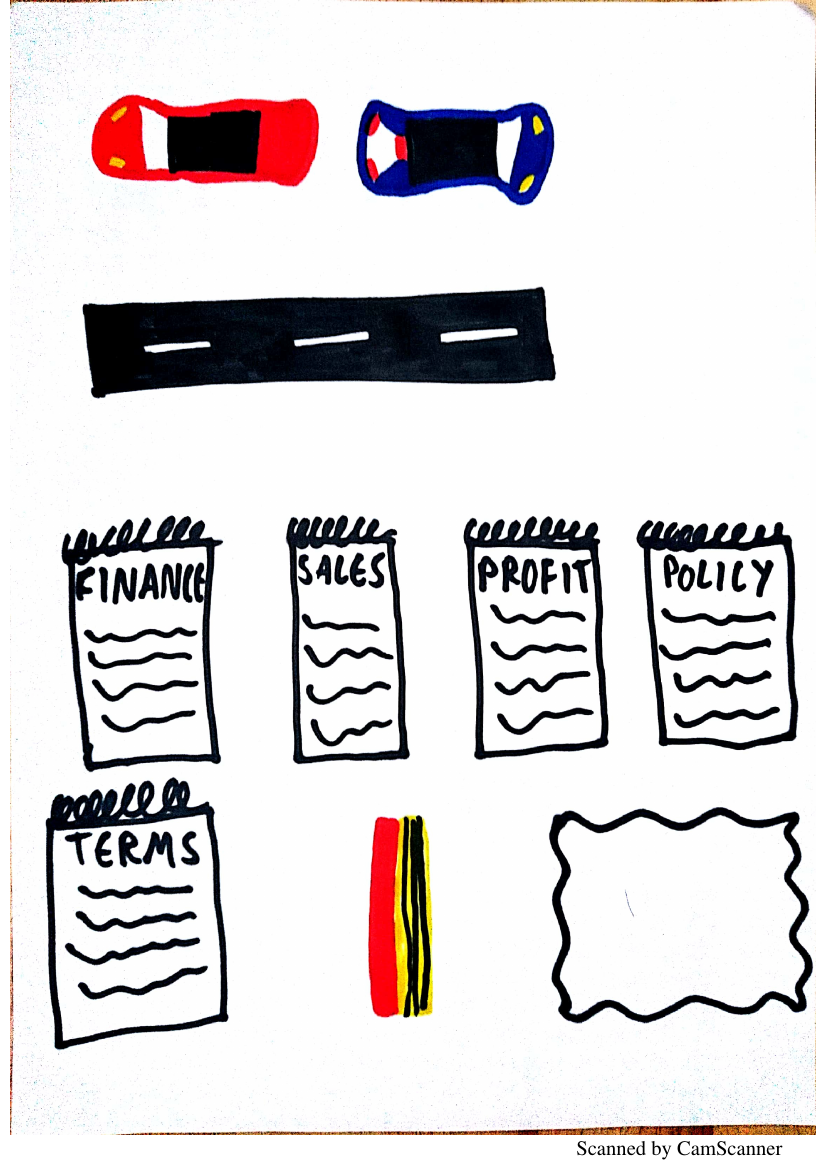 FINANCE
SALES
PROFIT
POLICY
TERMS
Scanned by CamScanner